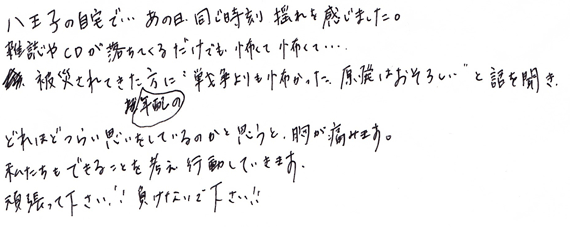 八王子の自宅で… あの日 同じ時刻 揺れを感じました。
雑誌やCDが落ちてくるだけでも 怖くて 怖くて…。
被災されてきた方に "戦争よりも怖かった 原発はおそろしい" と話を聞き、
年配の
どれほどつらい思いをしているのかと思うと、胸が痛みます。
私たちもできることを考え 行動していきます。
頑張って下さい!! 負けないで下さい!!